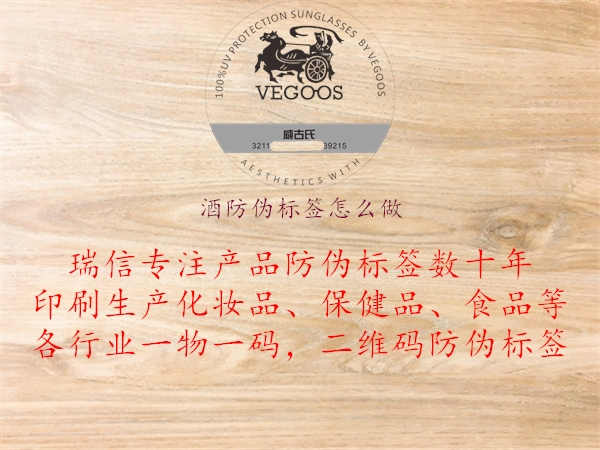 100%UV PROTECTION SUNGLASSES BY VEGOOS
VEGOOS
威古氏
3211 39215
AESTHETICS WITH
酒防伪标签怎么做
瑞信专注产品防伪标签数十年
印刷生产化妆品、保健品、食品等
各行业一物一码，二维码防伪标签